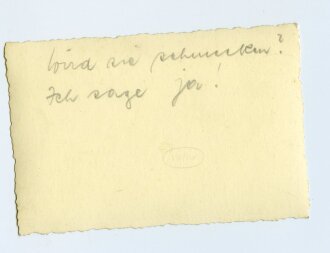 Wird sie schmecken?
Ich sage ja!